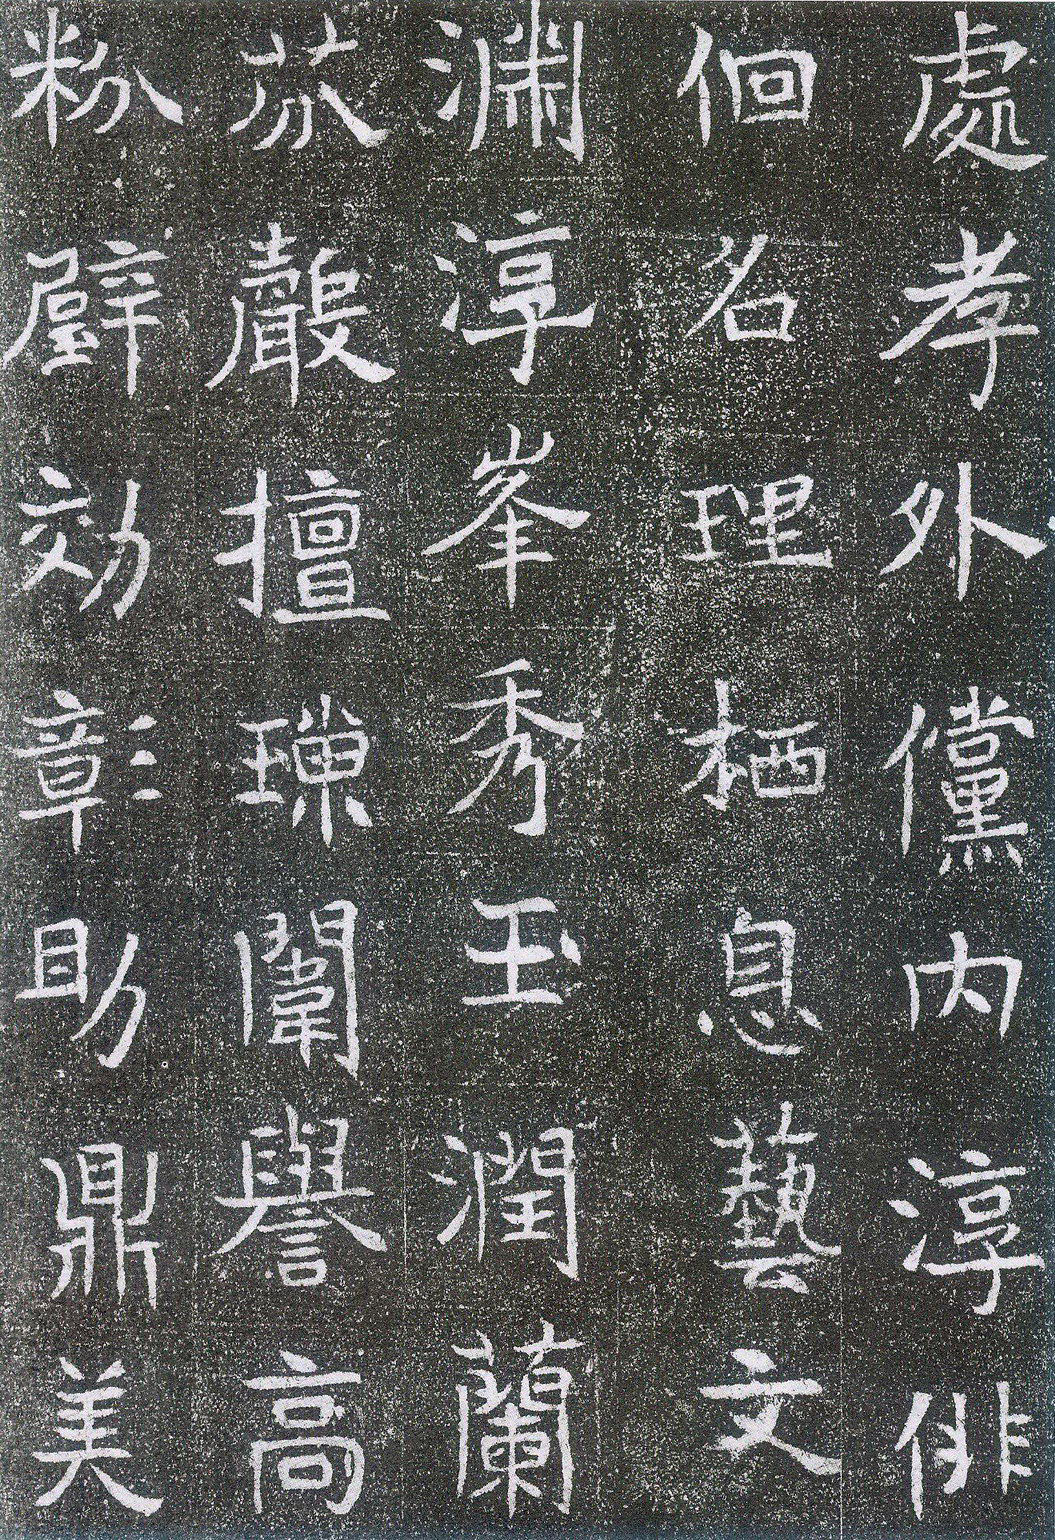 處孝外儻內淳俳
佪名理栖息藝文
淵淳峯秀玉潤蘭
芬聲擅璅闈譽高
粉壁効彰助鼎美